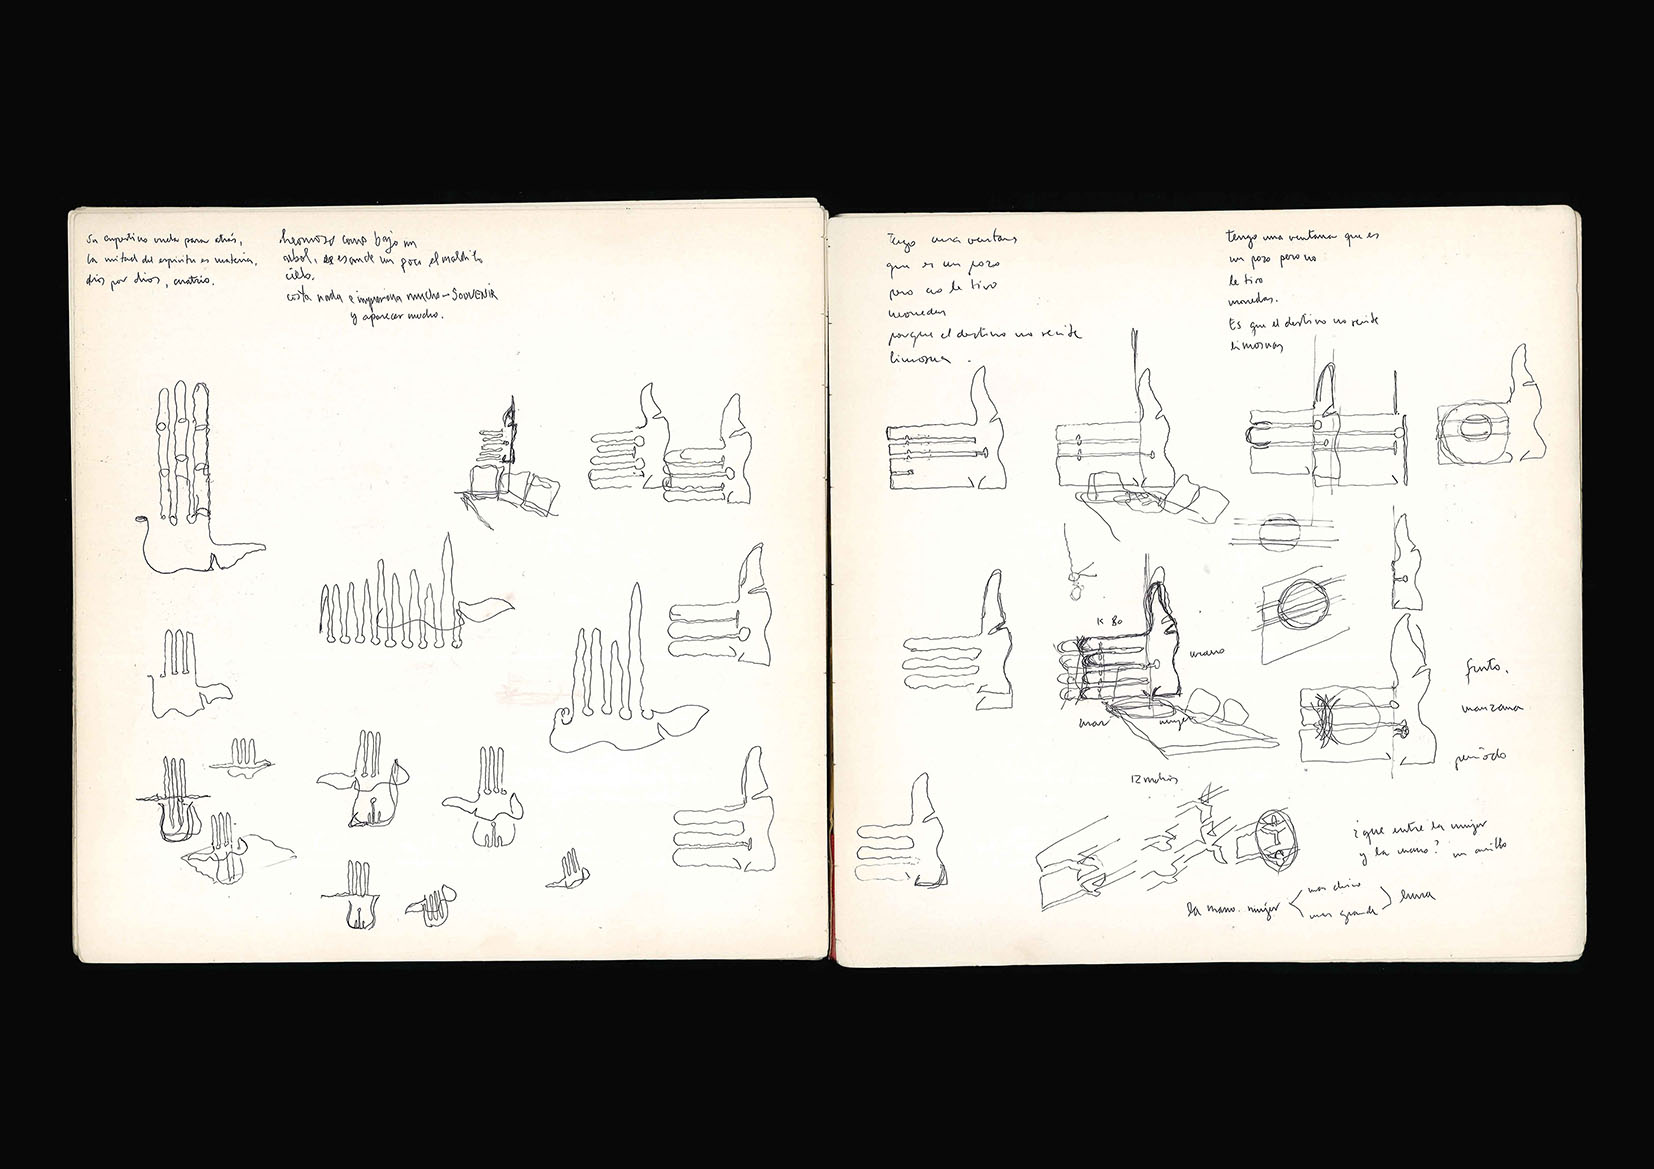 la mitad del espíritu es materia,
dios por dios,
hermoso como bajo un
arbol, se esconde un poco el maldito
cielo.
costa nada e impresiona mucho – SOUVENIR
y aparecer mucho.
Tengo una ventana
que es un pozo
pero no le tiro
monedas
porque el destino no recibe
limosna.
tengo una ventana que es
un pozo pero no
le tiro
monedas.
Es que el destino no recibe
limosnas
mano
mar
mujer
fruto.
manzana
período
¿que entre la mujer
y la mano? un anillo
la mano. mujer
mar chico
mar grande
luna